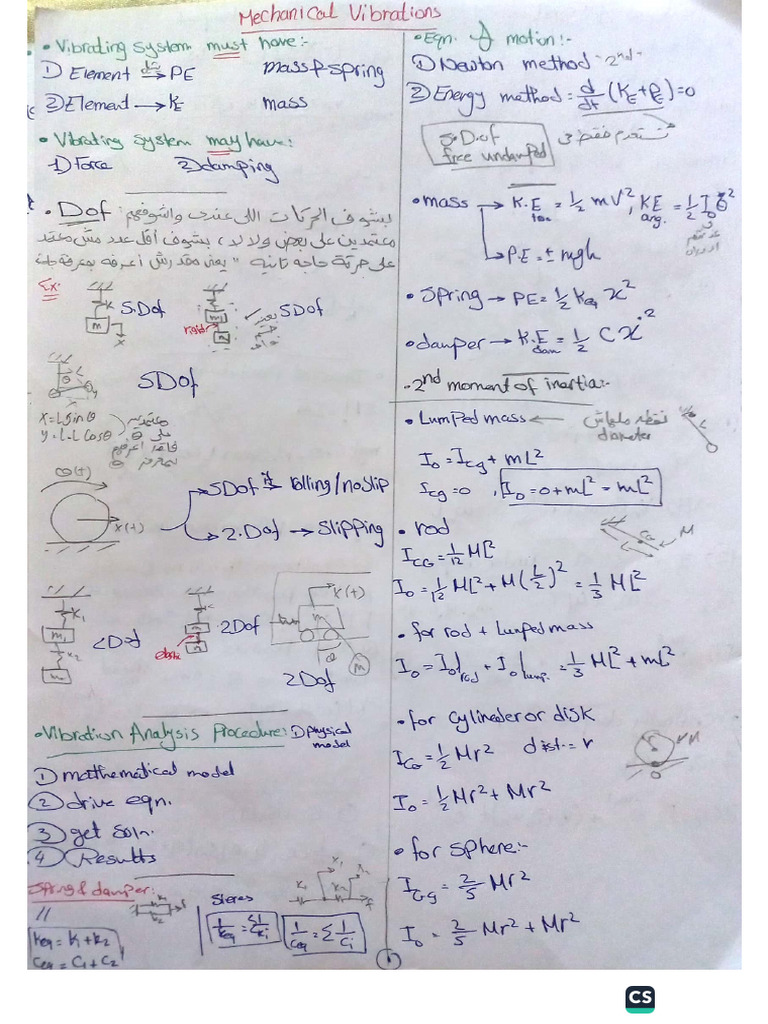 Mechanical Vibrations
• Vibrating system must have:-
1) Element → PE mass & spring
2) Element → KE mass
• Vibrating system may have:
1) Force 2) damping
• Dof بيشوف الحركات اللى عندى واشوفهم
معتمدين على بعض ولا لا، بيشوف أقل عدد مش معتمد
على حركة حاجه تانيه "يعنى مقدرش أعرفه بمعرفة
Ex:
K
m
x
SDof
m1
rigid
SDof
θ
L
y
SDof
x = L sin θ
y = L - L cos θ
على θ
θ(t)
x(t)
SDof if → Rolling/noslip
2.Dof → Slipping
x1
m1
x2
m2
2Dof
elastic
2Dof
x(t)
m
θ
m
2Dof
• Vibration Analysis Procedure: 1) physical model
1) matthematical model
2) drive eqn.
3) get soln.
4) Results
Spring & damper:
//
k1
k2
F
Keq = K1 + K2
Ceq = C1 + C2
Series
1/Keq = Σ 1/Ki
1/Ceq = Σ 1/Ci
x1
K1
F
• Eqn. of motion:-
1) Newton method "2nd"
2) Energy method = d/dt (KE + PE) = 0
S.Dof
free undamped
تستخدم فقط فى
• mass → K.E = 1/2 mV², KE ang. = 1/2 I0 θ̇²
→ P.E = ± mgh
• Spring → PE = 1/2 Keq x²
• damper → K.E dam = 1/2 C ẋ²
• 2nd moment of inertia:-
• Lumped mass ← نقطه ملهاش diameter
I0 = Icg + mL²
Icg = 0, I0 = 0 + mL² = mL²
• rod
CG
M
ICG = 1/12 ML²
I0 = 1/12 ML² + M(L/2)² = 1/3 ML²
• for rod + Lumped mass
I0 = I0|rod + I0|lump. = 1/3 ML² + mL²
• for cylineder or disk
ICG = 1/2 Mr² dist. = r
M
O
I0 = 1/2 Mr² + Mr²
• for sphere:-
ICg = 2/5 Mr²
I0 = 2/5 Mr² + Mr²
1
CS